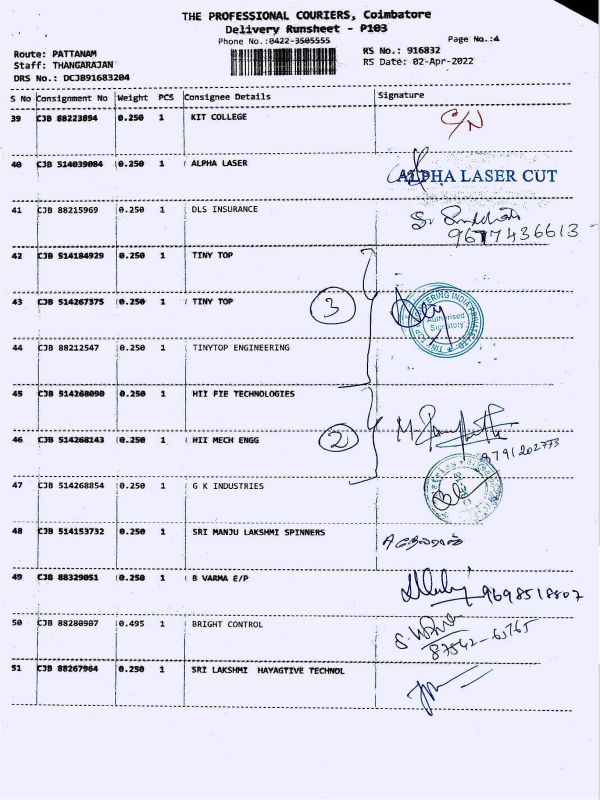 THE PROFESSIONAL COURIERS, Coimbatore
Delivery Runsheet - P103
Phone No.:0422-3505555
Page No.:4
Route: PATTANAM
RS No.: 916832
Staff: THANGARAJAN
RS Date: 02-Apr-2022
DRS No.: DCJB91683204
S No Consignment No Weight PCS Consignee Details Signature
39 CJB 88223894 0.250 1 KIT COLLEGE C/N
40 CJB 514039084 0.250 1 ALPHA LASER ALPHA LASER CUT
41 CJB 88215969 0.250 1 DLS INSURANCE
9677436613
42 CJB 514184929 0.250 1 TINY TOP
43 CJB 514267375 0.250 1 TINY TOP 3 Authorised Signatory
44 CJB 88212547 0.250 1 TINYTOP ENGINEERING
45 CJB 514268090 0.250 1 HII FIE TECHNOLOGIES
46 CJB 514268143 0.250 1 HII MECH ENGG 2
8791202773
47 CJB 514268854 0.250 1 G K INDUSTRIES
48 CJB 514153732 0.250 1 SRI MANJU LAKSHMI SPINNERS
49 CJB 88329051 0.250 1 B VARMA E/P 9698518807
50 CJB 88280907 0.495 1 BRIGHT CONTROL
87542-63765
51 CJB 88267964 0.250 1 SRI LAKSHMI HAYAGTIVE TECHNOL